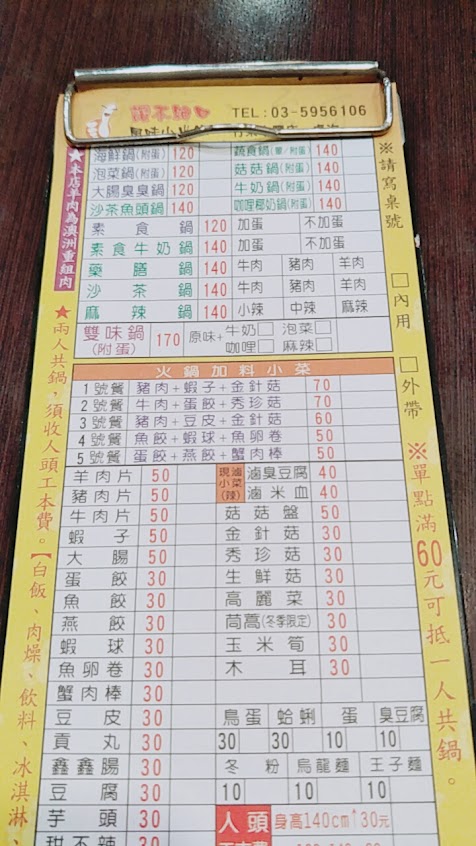 TEL:03-5956106
海鮮鍋(附蛋) 120 蔬食鍋(單/附蛋) 140
泡菜鍋(附蛋) 120 菇菇鍋(附蛋) 140
大腸臭臭鍋 120 牛奶鍋(附蛋) 140
沙茶魚頭鍋 140 咖哩椰奶鍋(附蛋) 140
素食鍋 120 加蛋 不加蛋
素食牛奶鍋 140 加蛋 不加蛋
藥膳鍋 140 牛肉 豬肉 羊肉
沙茶鍋 140 牛肉 豬肉 羊肉
麻辣鍋 140 小辣 中辣 麻辣
雙味鍋(附蛋) 170 原味+ 牛奶□ 泡菜□
咖哩□ 麻辣□
火鍋加料小菜
1號餐 豬肉+蝦子+金針菇 70
2號餐 牛肉+蛋餃+秀珍菇 70
3號餐 豬肉+豆皮+金針菇 60
4號餐 魚餃+蝦球+魚卵卷 50
5號餐 蛋餃+燕餃+蟹肉棒 50
羊肉片 50 現滷小菜(辣) 滷臭豆腐 40
豬肉片 50 滷米血 40
牛肉片 50 菇菇盤 50
蝦子 50 金針菇 30
大腸 50 秀珍菇 30
蛋餃 30 生鮮菇 30
魚餃 30 高麗菜 30
燕餃 30 茼蒿(冬季限定) 30
蝦球 30 玉米筍 30
魚卵卷 30 木耳 30
蟹肉棒 30
豆皮 30 鳥蛋 蛤蜊 蛋 臭豆腐
貢丸 30 30 30 10 10
鑫鑫腸 30 冬粉 烏龍麵 王子麵
豆腐 30 10 10 10
芋頭 30 人頭 身高140cm↑30元
甜不辣 30
★本店羊肉為澳洲重組肉
★兩人共鍋,須收人頭工本費。【白飯、肉燥、飲料、冰淇淋、
※請寫桌號
□內用
□外帶
※單點滿60元可抵一人共鍋。